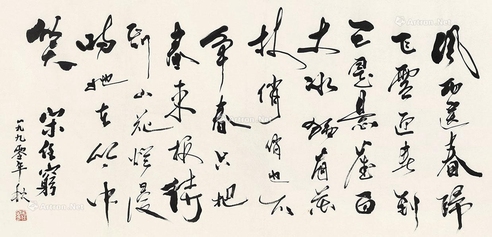 風雨送春歸
飞雪迎春到
已是悬崖百
丈冰猶有花
枝俏俏也不
争春只把
春来報待
到山花爛漫
時她在丛中
笑
宋任窮
一九九零年秋